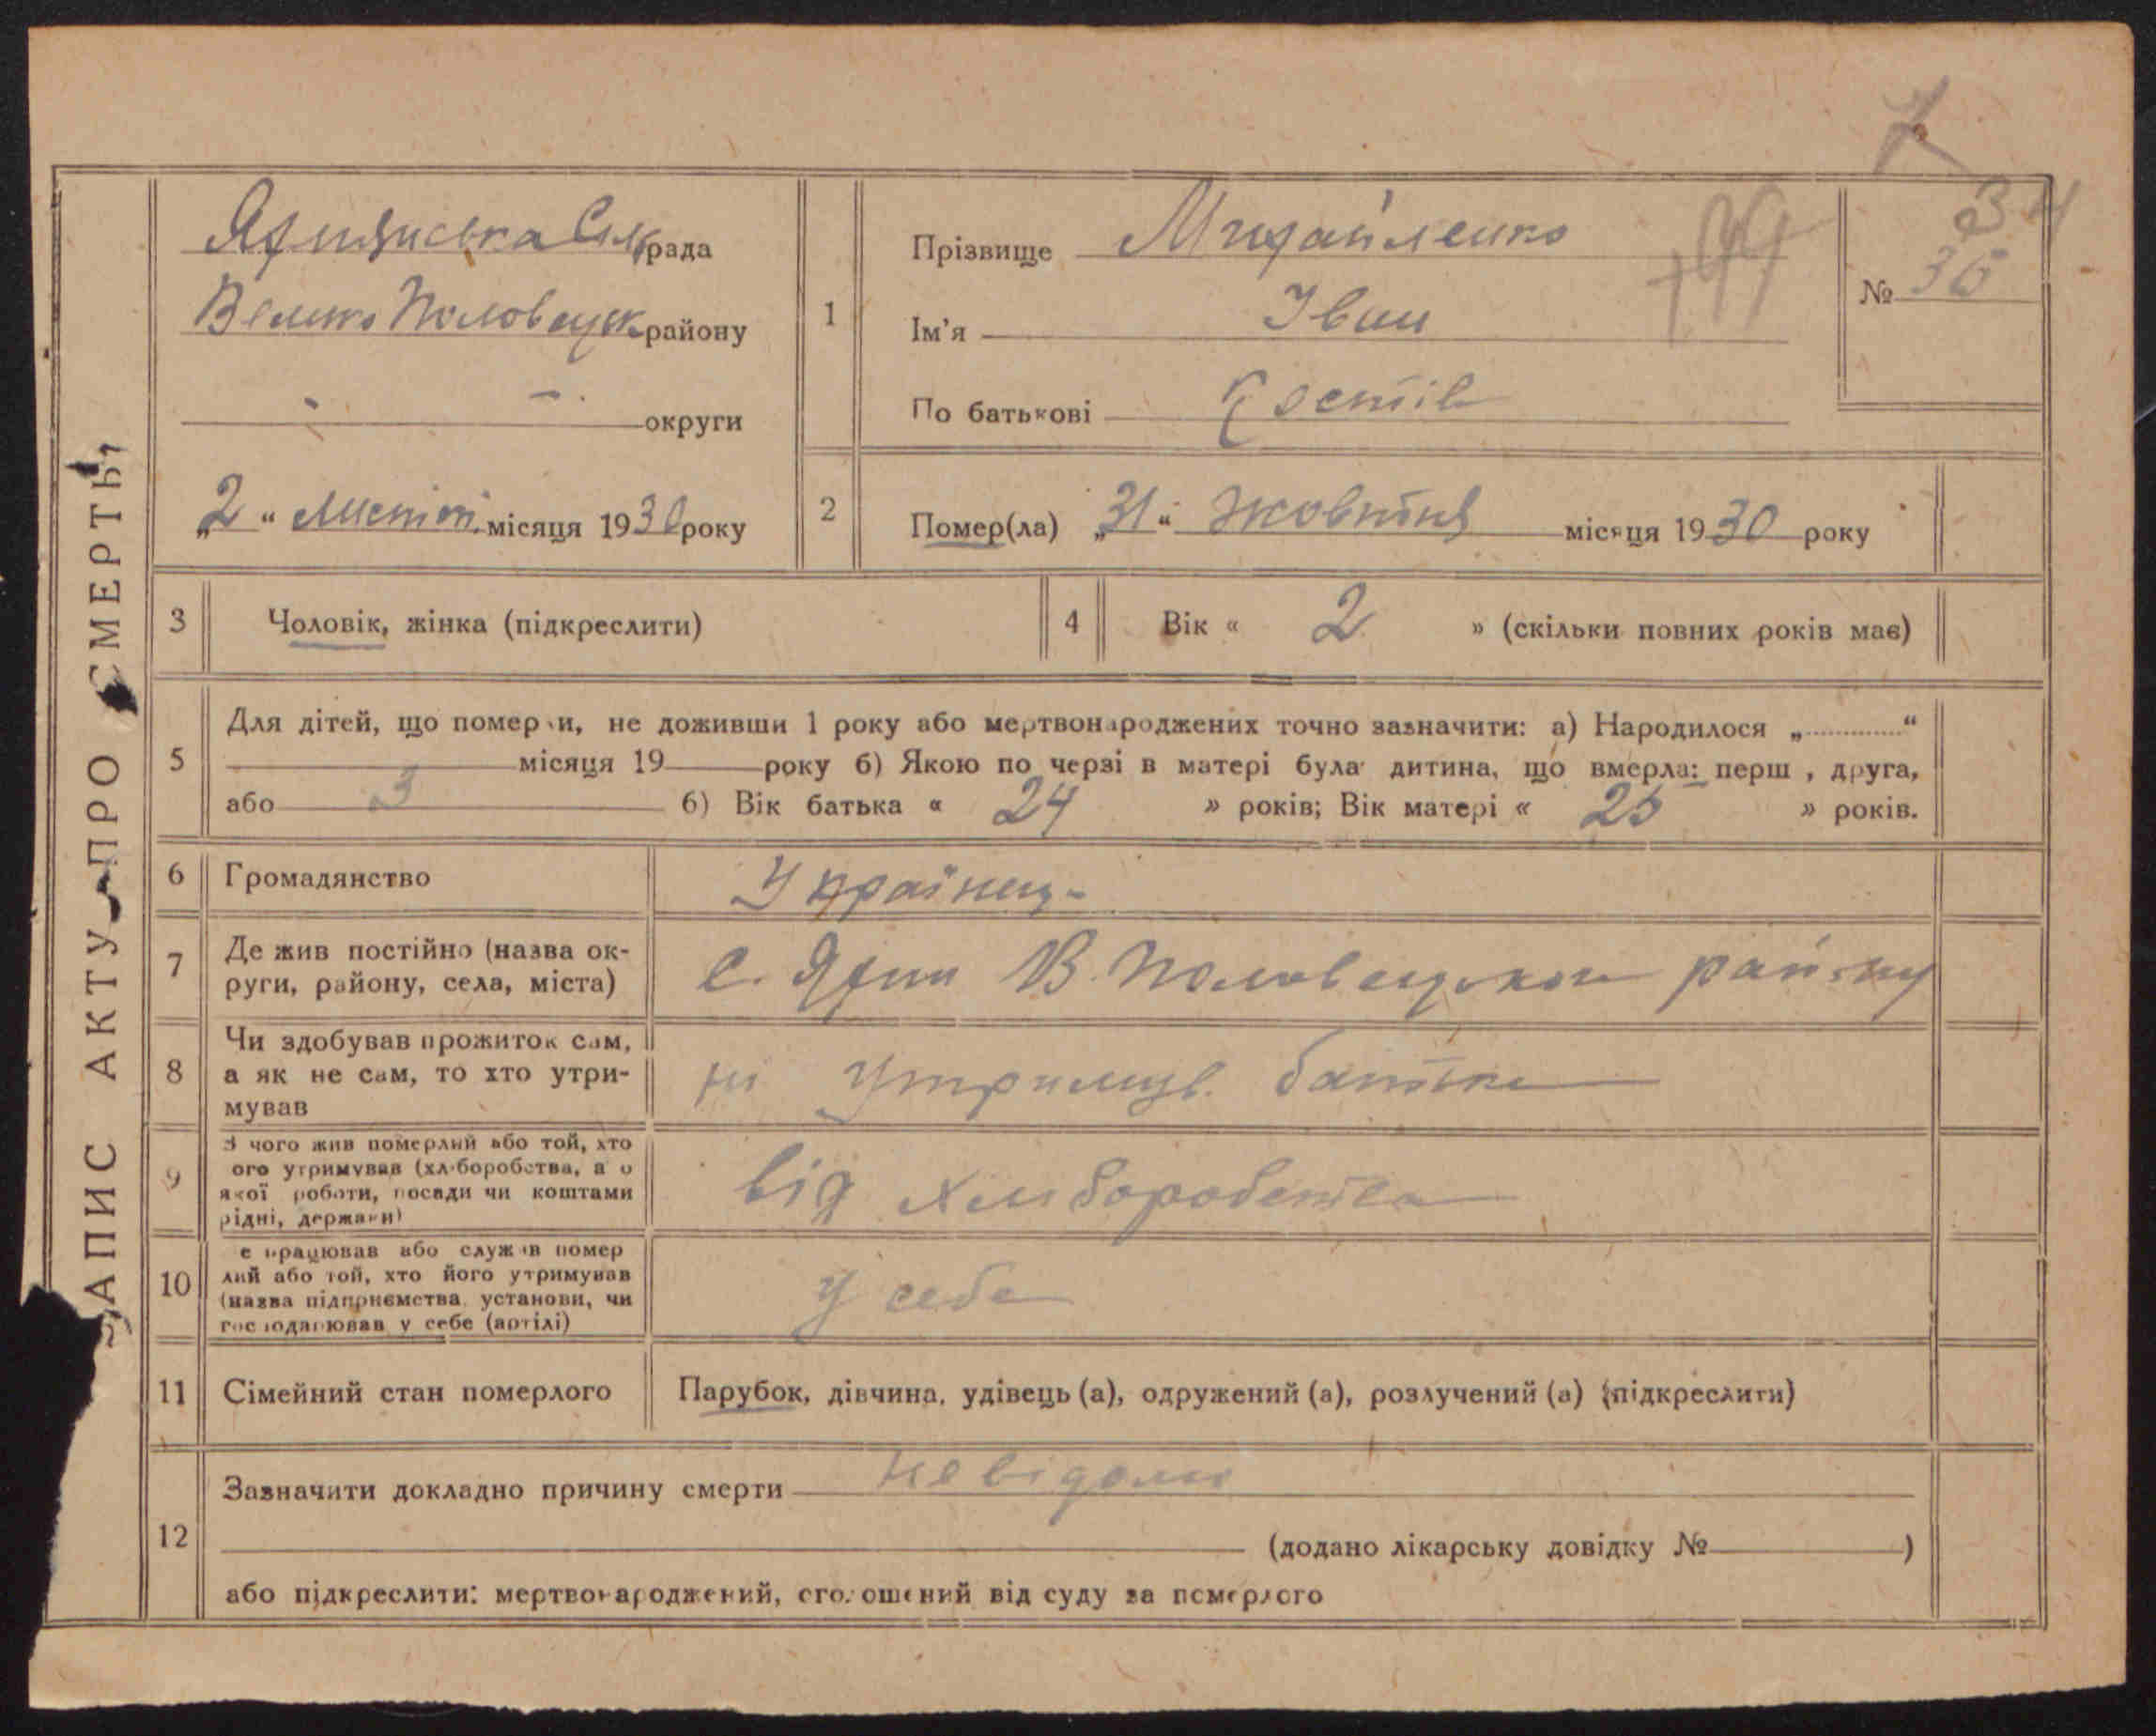 ЗАПИС АКТУ ПРО СМЕРТЬ
рада
Велико Половецьк району
округи
„2“ місяця 1930 року
1
Прізвище Михайленко
Ім'я Іван
По батькові Костів
№ 36
34
2
Помер(ла) „31“ жовтня місяця 1930 року
3
Чоловік, жінка (підкреслити)
4
Вік « 2 » (скільки повних років має)
5
Для дітей, що померли, не доживши 1 року або мертвонароджених точно зазначити: а) Народилося „ “
місяця 19 року б) Якою по черзі в матері була дитина, що вмерла: перш , друга,
або 3 б) Вік батька « 24 » років; Вік матері « 25 » років.
6
Громадянство
Українец-
7
Де жив постійно (назва ок-
руги, району, села, міста)
с. В. Половецького району
8
Чи здобував прожиток сам,
а як не сам, то хто утри-
мував
ні утримув. батько
9
З чого жив померлий або той, хто
ого утримував (хліборобства, а о
якої роботи, посади чи коштами
рідні, держави)
від хліборобства
10
е працював або служив помер
лий або той, хто його утримував
(назва підприємства, установи, чи
господарював у себе (артілі)
у себе
11
Сімейний стан померлого
Парубок, дівчина, удівець (а), одружений (а), розлучений (а) (підкреслити)
12
Зазначити докладно причину смерти невідомо
(додано лікарську довідку № )
або підкреслити: мертвонароджений, оголошений від суду за померлого